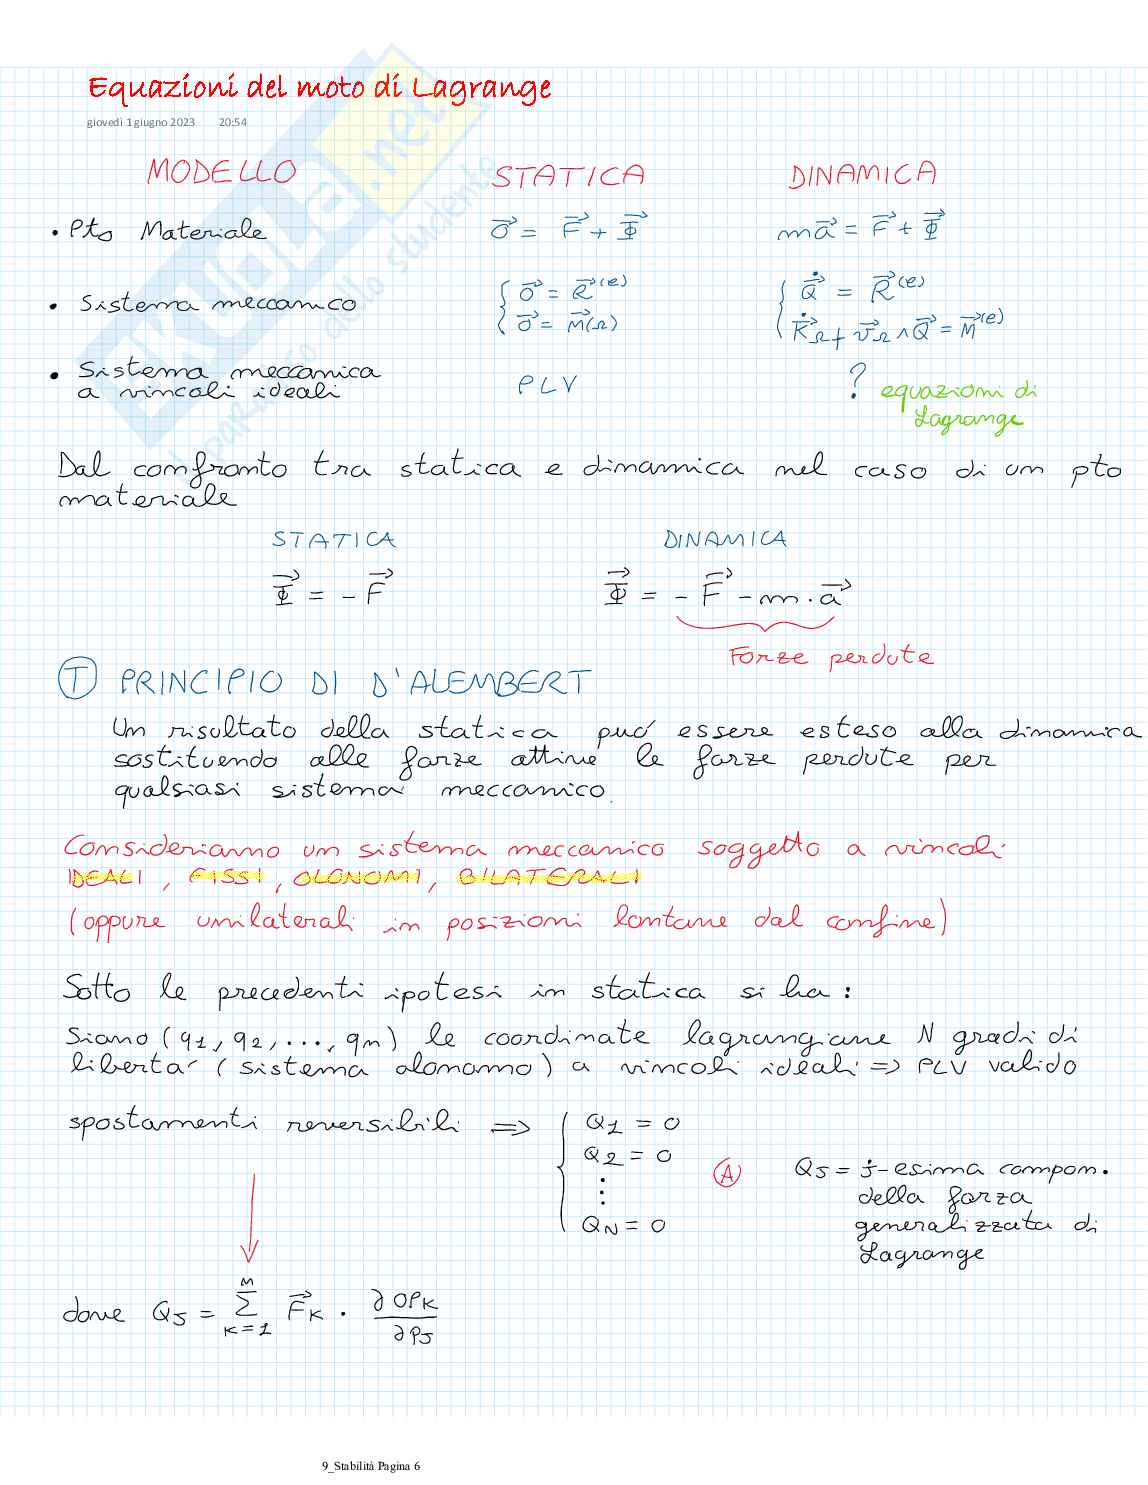 Equazioni del moto di Lagrange
giovedì 1 giugno 2023 20:54
MODELLO STATICA DINAMICA
• Pto Materiale $\vec{0} = \vec{F} + \vec{\Phi}$ $m\vec{a} = \vec{F} + \vec{\Phi}$
• Sistema meccanico $\begin{cases} \vec{0} = \vec{R}^{(e)} \\ \vec{0} = \vec{M}(\Omega) \end{cases}$ $\begin{cases} \dot{\vec{Q}} = \vec{R}^{(e)} \\ \dot{\vec{K}}_\Omega + \vec{v}_\Omega \wedge \vec{Q} = \vec{M}^{(e)} \end{cases}$
• Sistema meccanica
a vincoli ideali PLV ? equazioni di
Lagrange
Dal confronto tra statica e dinamica nel caso di un pto
materiale
STATICA DINAMICA
$\vec{\Phi} = -\vec{F}$ $\vec{\Phi} = -\vec{F} - m \cdot \vec{a}$
Forze perdute
T PRINCIPIO DI D'ALEMBERT
Un risultato della statica puó essere esteso alla dinamica
sostituendo alle forze attive le forze perdute per
qualsiasi sistema meccanico.
Consideriamo un sistema meccanico soggetto a vincoli
IDEALI, FISSI, OLONOMI, BILATERALI
(oppure unilaterali in posizioni lontane dal confine)
Sotto le precedenti ipotesi in statica si ha:
Siano (q1, q2, ..., qn) le coordinate lagrangiane N gradi di
libertá (sistema olonomo) a vincoli ideali => PLV valido
spostamenti reversibili => $\begin{cases} Q_1 = 0 \\ Q_2 = 0 \\ \vdots \\ Q_N = 0 \end{cases}$ A QJ = j-esima compon.
della forza
generalizzata di
Lagrange
dove $Q_J = \sum_{K=1}^{M} \vec{F}_K \cdot \frac{\partial OP_K}{\partial p_J}$
9_Stabilità Pagina 6
SKUOLA.net
il paradiso dello studente